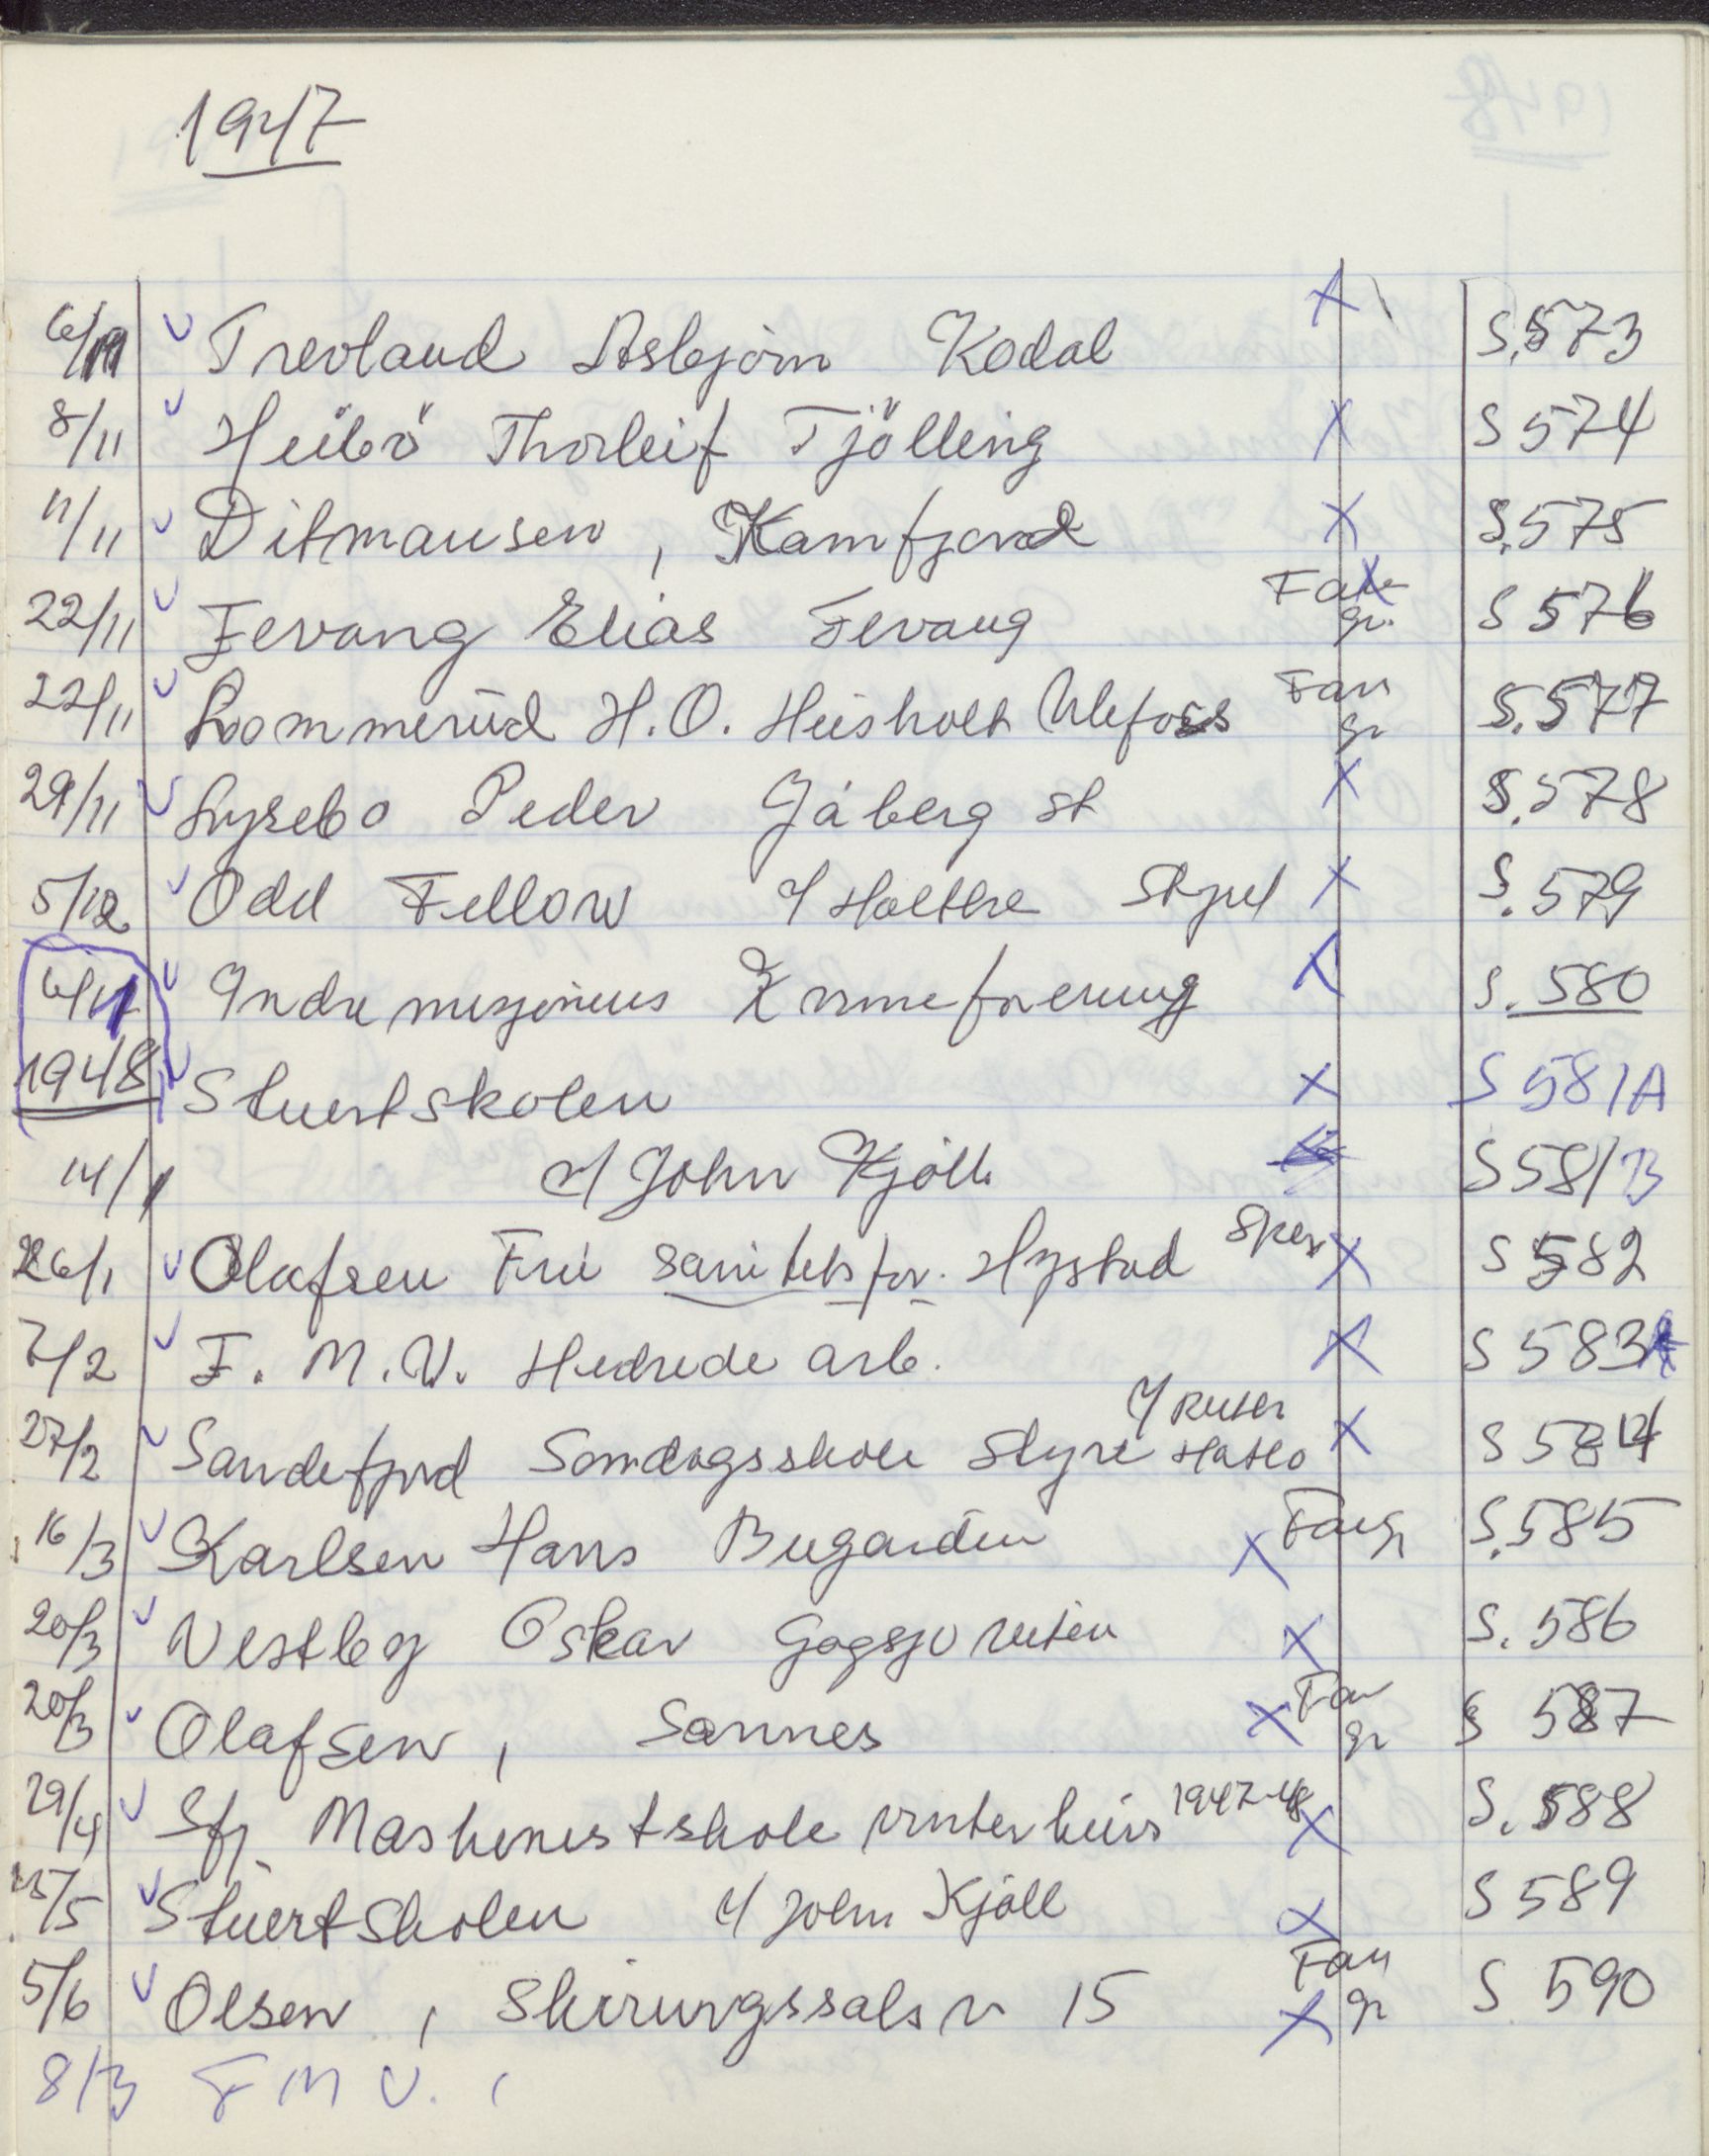 1947
6/11 Trevland Asbjørn Kodal X S.573
8/11 Heibö Thorleif Tjölling X S 574
11/11 Ditmansen, Kamfjord X S.575
22/11 Fevang Elias Fevang Fam gr. X S 576
22/11 Lommerud H.O. Heisholt Ulefoss Fam gr S.577
29/11 Lysebo Peder Jåberg st X S.578
5/12 Odd Fellow X S.579
6/1 Indremisjonens Kvinneforening X S.580
1948 Stuertskolen X S 581A
14/1 v/ John Kjöll S 581B
26/1 Olafsen Fru sanitetsfor. Hystad X S 582
7/2 F.M.V. Hedrede arb. X S 583A
27/2 Sandefjord Søndagsskole Styre X S 584
16/3 Karlsen Hans Bugården X Fam gr S.585
20/3 Vestby Oskar X S. 586
20/3 Olafsen, Sannes X Fam gr S 587
29/4 Sfj Maskinistskole vinterkurs 1947-48 X S. 588
15/5 Stuertskolen v/ John Kjöll X S 589
5/6 Olsen, Skiringssals v 15 X Fam gr S 590
8/3 F M V.